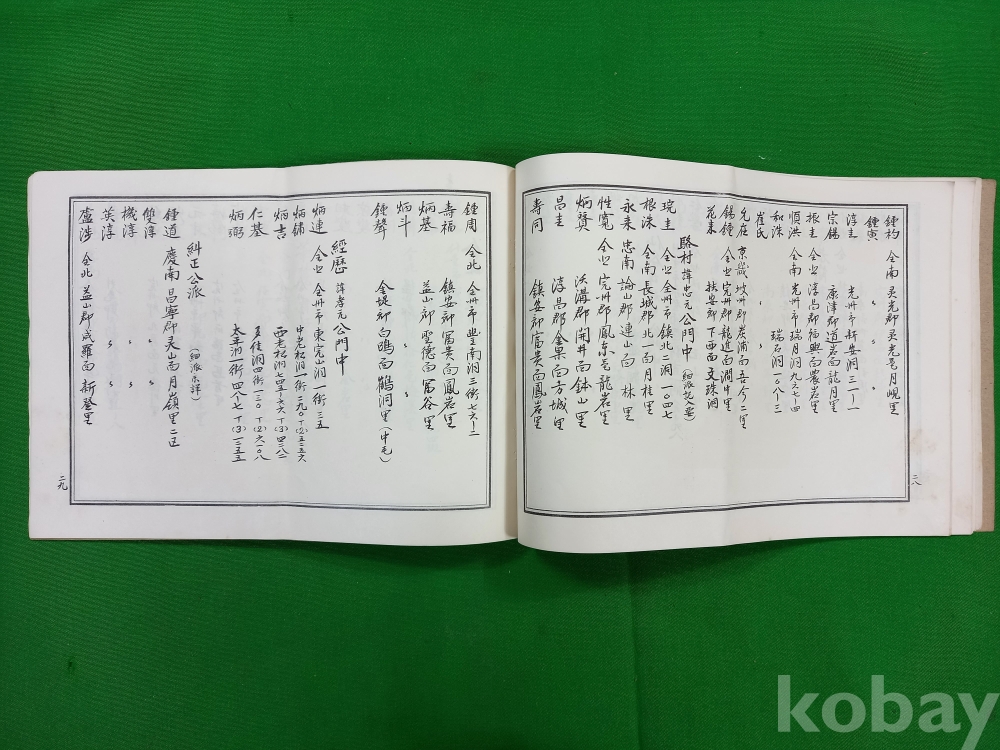 鍾杓 全南 灵光郡 灵光邑 月峴里
鍾寅 〃 〃 〃
淳圭 光州市 新安洞 三一一
宗錫 康津郡 道岩面 龍月里
根圭 全北 淳昌郡 福興面 農岩里
順洪 全南 光州市 瑞月洞 九六七-四
和洙 瑞石洞 一〇八个三
崔氏 〃 〃
允在 京畿 坡州郡 炭浦面 吾今二里
錫鍾 全北 完州郡 龍進面 澗中里
花東 扶安郡 下西面 文珠洞
駱村 諱忠元 公門中
琓圭 全北 全州市 鎮北二洞 一〇四七
根洙 全南 長城郡 北一面 月桂里
永来 忠南 論山郡 連山面 林里
性寬 全北 完州郡 鳳東邑 龍岩里
炳贊 沃溝郡 開井面 鉢山里
昌圭 淳昌郡 金果面 方城里
壽同 鎮安郡 富貴面 鳳岩里
二八
鍾周 全北 全州市 豊南洞 三街 七六-二
壽福 鎮安郡 富貴面 鳳岩里
炳基 益山郡 聖德面 富谷里
炳斗 〃 〃
鍾聲 金堤郡 白鷗面 鶴洞里(中毛)
經歷 諱孝元 公門中
炳連 全北 全州市 東完山洞 一街 三五
炳鏞 中老松洞 一街 二九〇 T(2)五二五六
炳吉 西老松洞 七四五-六 T(3)四二八二
仁基 四街 一三〇 T(2)六一〇八
炳弼 太平洞 一街 四八个七 T(3)一三五五
糾正公派 (細派未詳)
鍾道 慶南 昌寧郡 灵山面 月嶺里 二区
雙淳 〃 〃
機淳 〃 〃
英淳 〃 〃
盧涉 全北 益山郡 咸羅面 新登里
二九
kobay